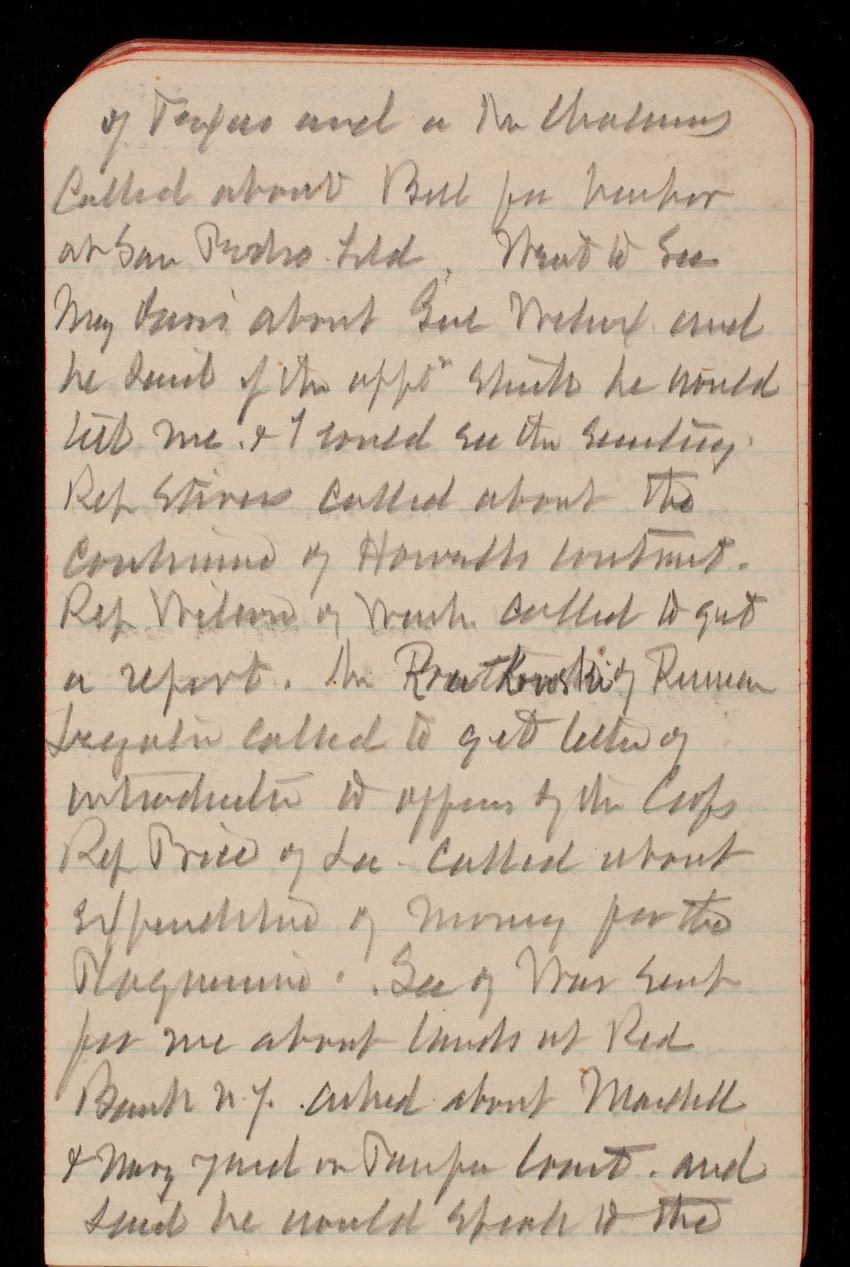 of Texas and a Mr Chalmers
Called about Bill for harbor
at San Pedro. Told. Went to see
Maj Davis about Gul and
he said if the appt stuck he would
let me. & I could see the Secretary.
Rep Stivers called about the
of Howells contract.
Rep Wilson of Wash. called to get
a report. Mr Rvatkowski of Russian
Legation called to get letter of
introduction to officers of the Corps
Rep Price of La. called about
expenditure of money for the
Plaquemine. Sec of War sent
for me about lands at Red
Bank N.J. asked about
& Navy yard on Tampa Coast. and
said he would speak to the